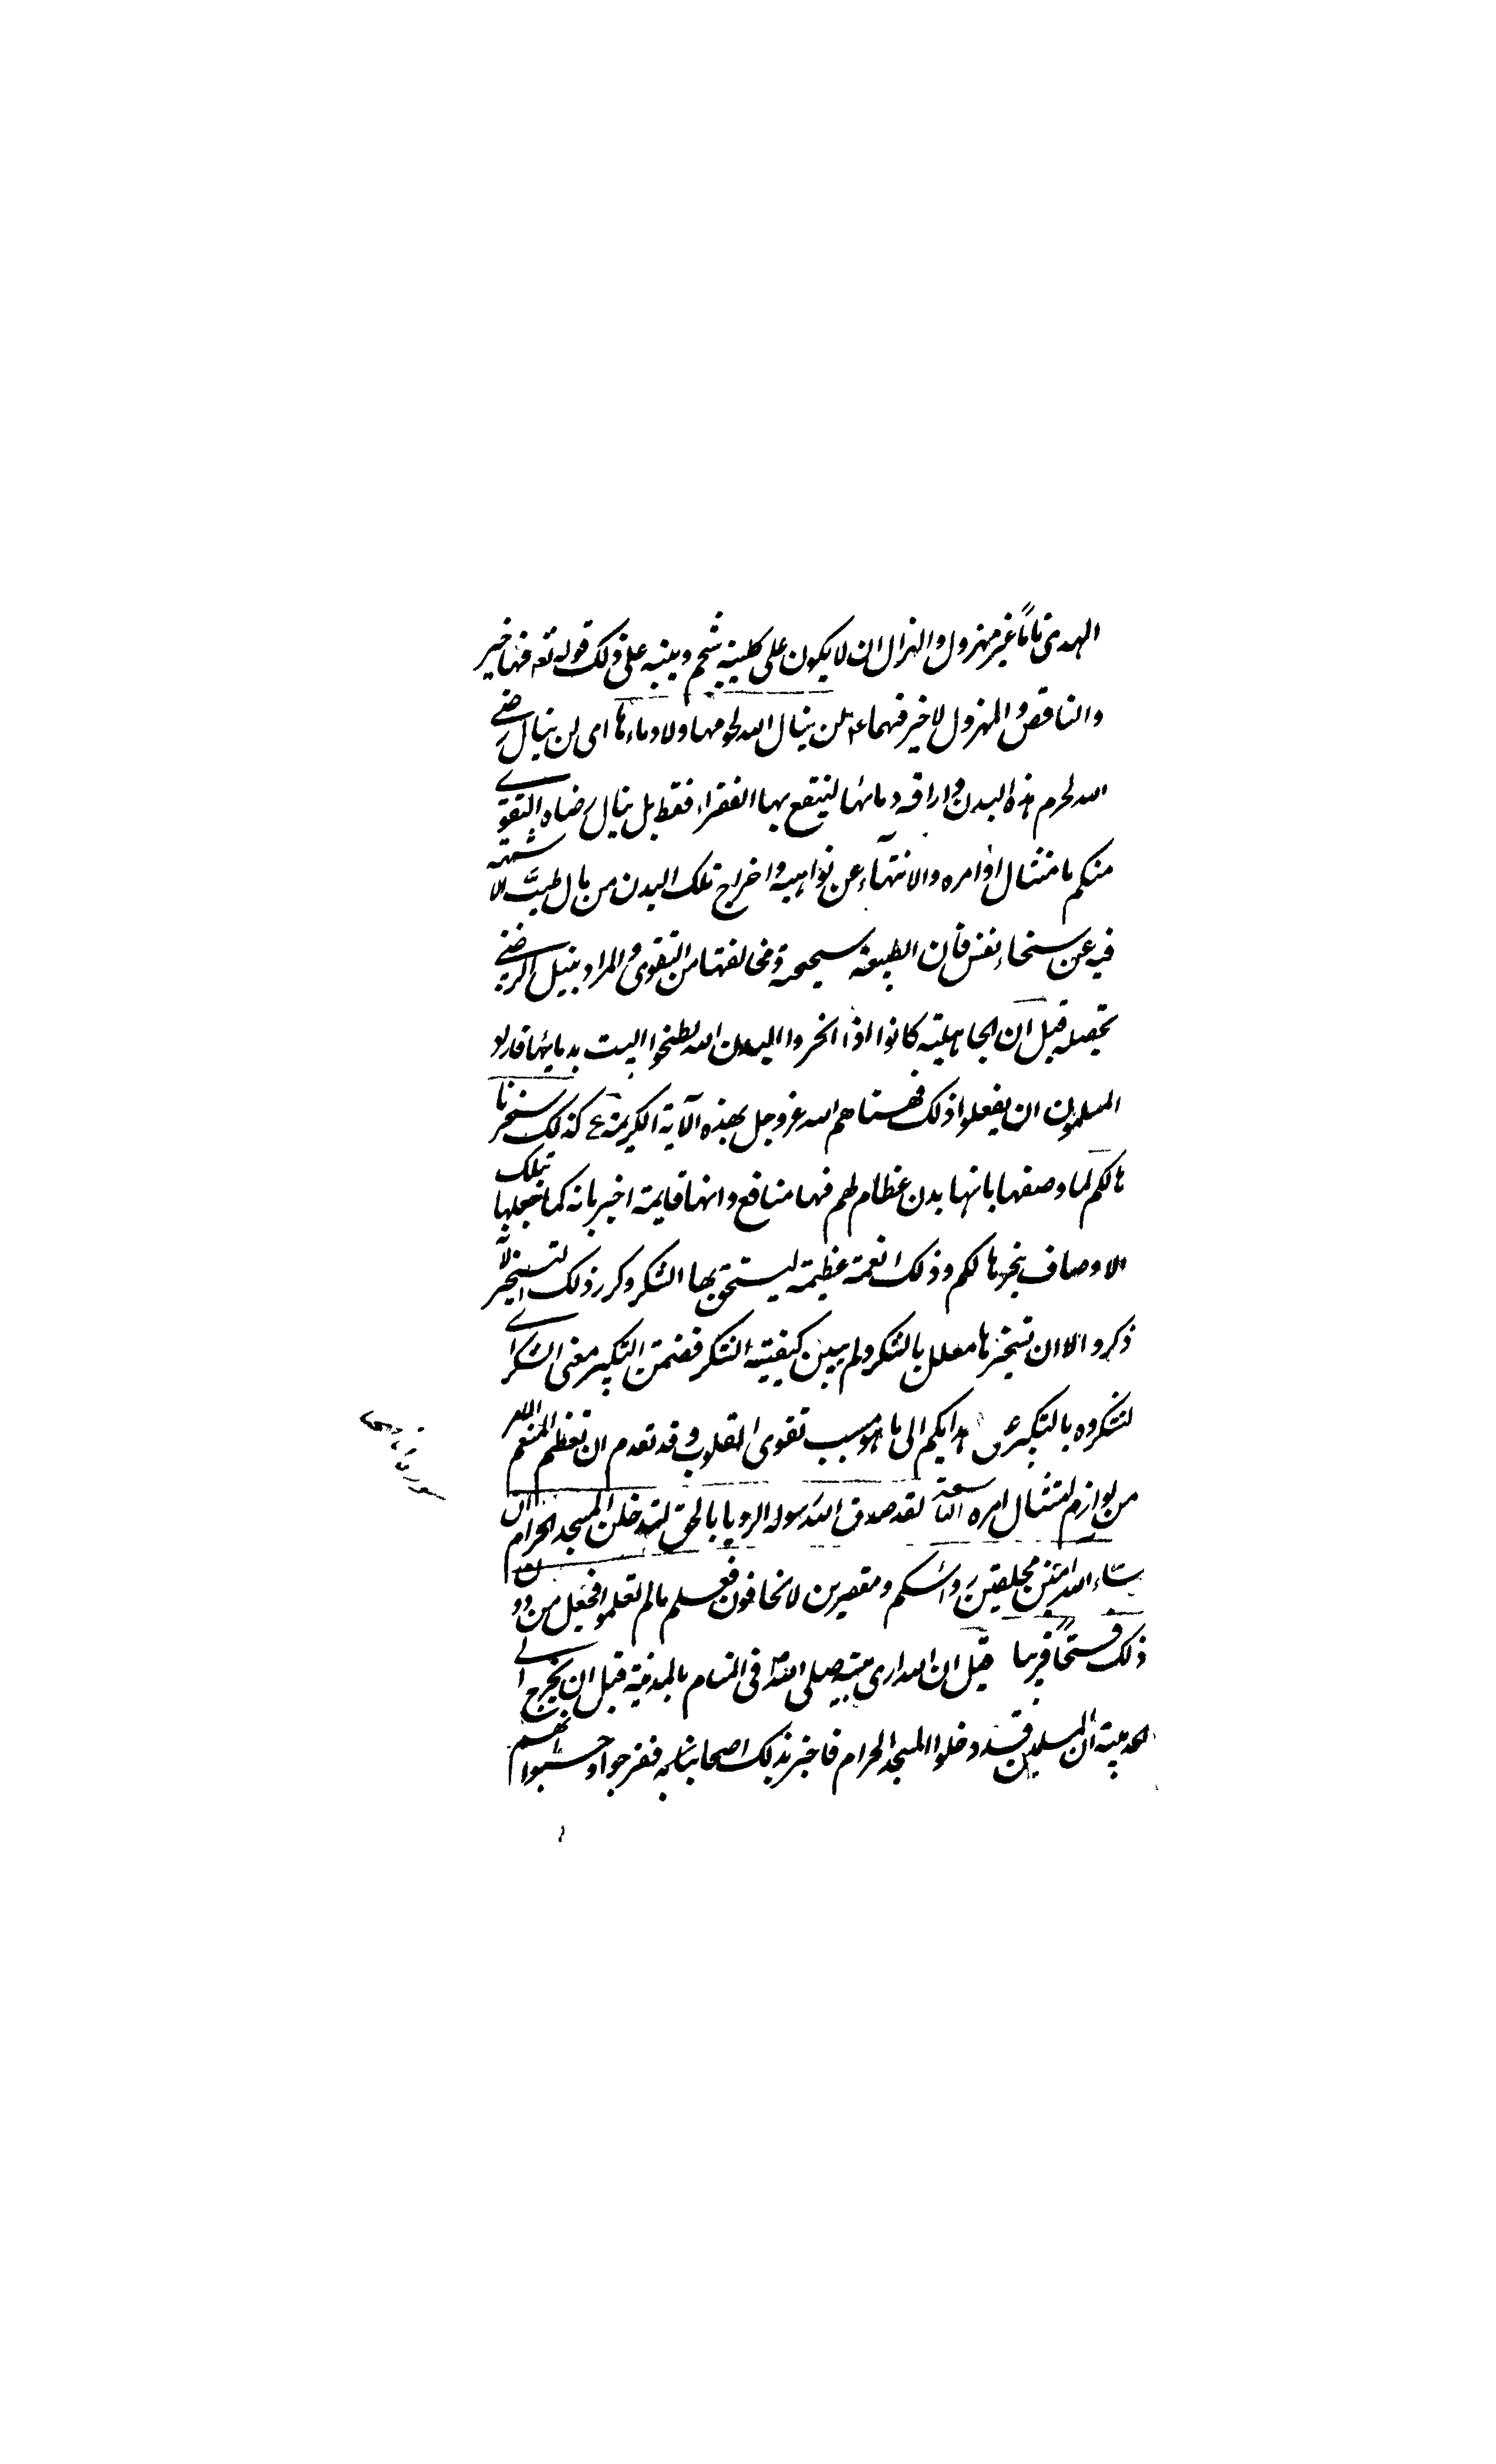 الهدى تاماً غير مهزول والهزال ان لا يكون على كليتيه شحم وينبه على ذلك قوله تعه فيها خير
والناقص والمهزول لا خير فيهما لن ينال الله لحومها ولا دماءها اى لن ينال رضى
الله لحرم هذه البدن واراقه دمائها لينتفع بها الفقراء فقط بل ينال رضاه التقوى
منكم بامتثال اوامره والانتهاء عن نواهيه واخراج تلك البدن من مال طيب لا شبهة
فيه عن سخاء نفس فان الطبيعة شحيحة ومخالفتها من التقوى والمراد بنيل الرضى
تحصله قيل ان الجاهلية كانوا اذا نحروا البدن لطخوا البيت بدمائها فاراد
المسلمون ان يفعلوا ذلك فنهاهم الله عز وجل بهذه الآية الكريمة كذلك سخرنا
ها لكم لما وصفها بانها بدن عظام لهم فيها منافع وانها قايمة اخبر بانه كما جعلها بتلك
الاوصاف سخرها لكم وذلك نعمة عظيمة ليستحق بها الشكر وكرر ذلك التسخير لا
ذكر والا ان تسخيرها معلل بالشكر ولم يبين كيفيته الشكر فضمن التكبير معنى الشكر اى
لتشكروه بالتكبير على هدايكم الى ما هو سبب تقوى القلوب وقد تقدم ان تعظيم المنعم
من لوازم امتثال امره التاسعة لقد صدق الله رسوله الرويا بالحق لتدخلن المسجد الحرام ان
شاء الله امنين محلقين رؤاسكم ومقصرين لا تخافون فعلم مالم تعلموا فجعل من دون
ذلك فتحاً قريبا قيل ان الله ارى نبيه صلى الله فى المنام بالمدينة قبل ان يخرج الى
الحديبية ان المسلمين قد دخلوا المسجد الحرام فاخبر بذلك اصحابه ففرحوا وحسبوا انهم